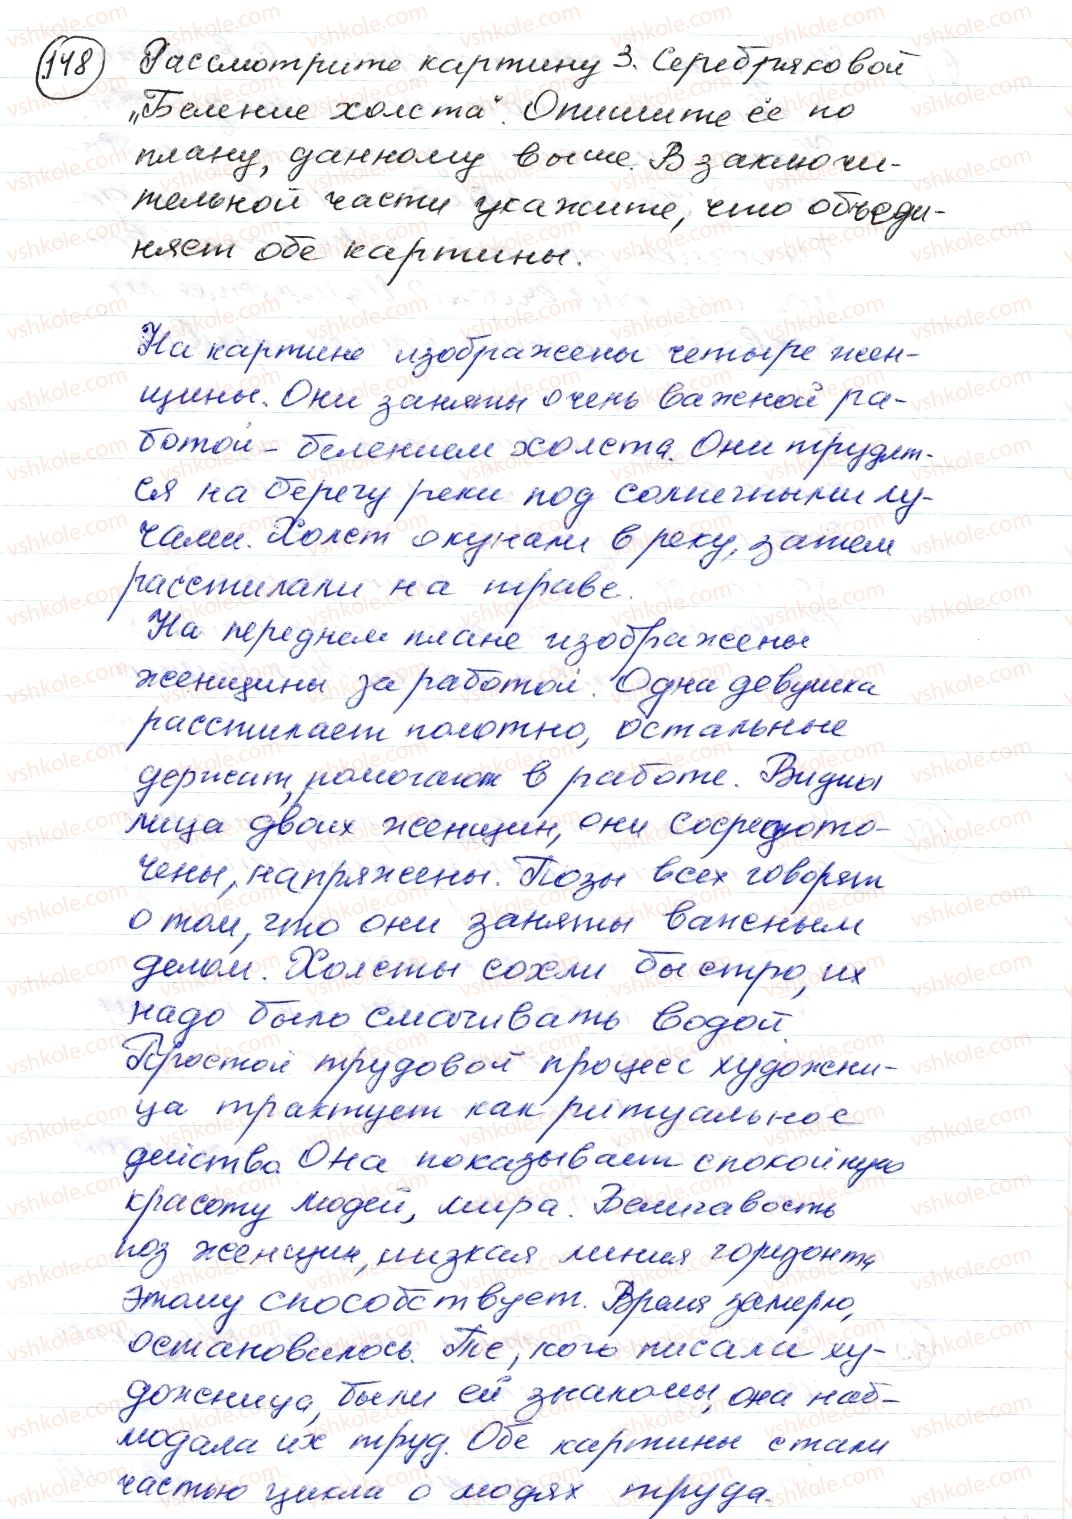 148 Рассмотрите картину З. Серебряковой
„Беление холста". Опишите её по
плану, данному выше. В заключи-
тельной части укажите, что объеди-
няет обе картины.
На картине изображены четыре жен-
щины. Они заняты очень важной ра-
ботой - белением холста. Они трудят-
ся на берегу реки под солнечными лу-
чами. Холст окунали в реку, затем
расстилали на траве.
На переднем плане изображены
женщины за работой. Одна девушка
расстилает полотно, остальные
держат, помогают в работе. Видны
лица двоих женщин, они сосредото-
чены, напряжены. Позы всех говорят
о том, что они заняты важным
делом. Холсты сохли быстро, их
надо было смачивать водой.
Простой трудовой процесс художни-
ца трактует как ритуальное
действо. Она показывает спокойную
красоту людей, мира. Величавость
поз женщин, низкая линия горизонта
этому способствует. Время замерло,
остановилось. Те, кого писала ху-
дожница, были ей знакомы, она наб-
людала их труд. Обе картины стали
частью цикла о людях труда.
vshkole.com